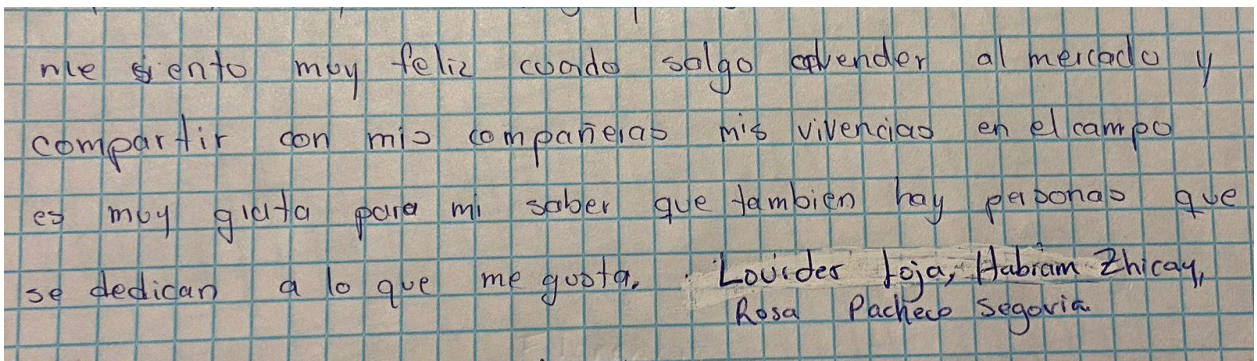 me siento muy feliz cuando salgo a vender al mercado y
compartir con mis compañeras mis vivencias en el campo
es muy grata para mi saber que tambien hay personas que
se dedican a lo que me gusta. Lourdes Loja, Habram Zhicay,
Rosa Pacheco Segovia